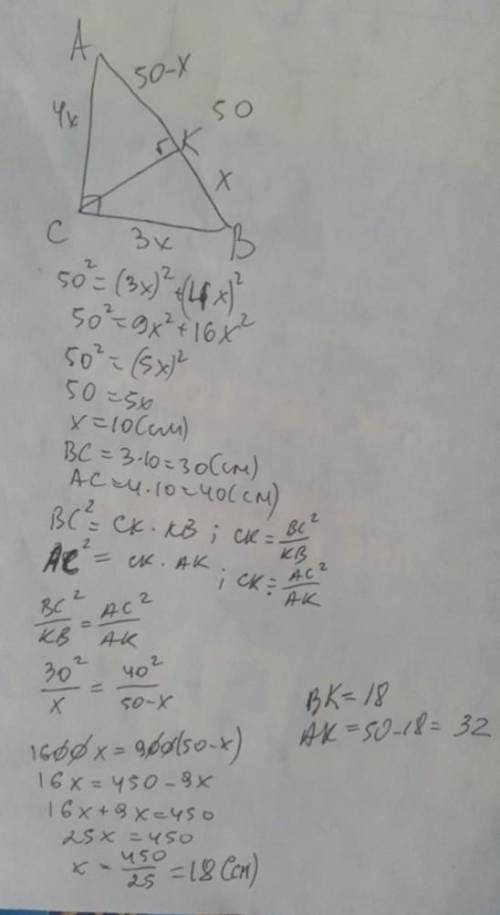 A
50-x
4x
50
K
x
C
3x
B
50² = (3x)² + (4x)²
50² = 9x² + 16x²
50² = (5x)²
50 = 5x
x = 10 (см)
BC = 3·10 = 30 (см)
AC = 4·10 = 40 (см)
BC² = CK · KB ; CK = BC²/KB
AC² = CK · AK ; CK = AC²/AK
BC²/KB = AC²/AK
30²/x = 40²/50-x
BK = 18
AK = 50-18 = 32
1600x = 900(50-x)
16x = 450 - 9x
16x + 9x = 450
25x = 450
x - 450/25 = 18 (см)